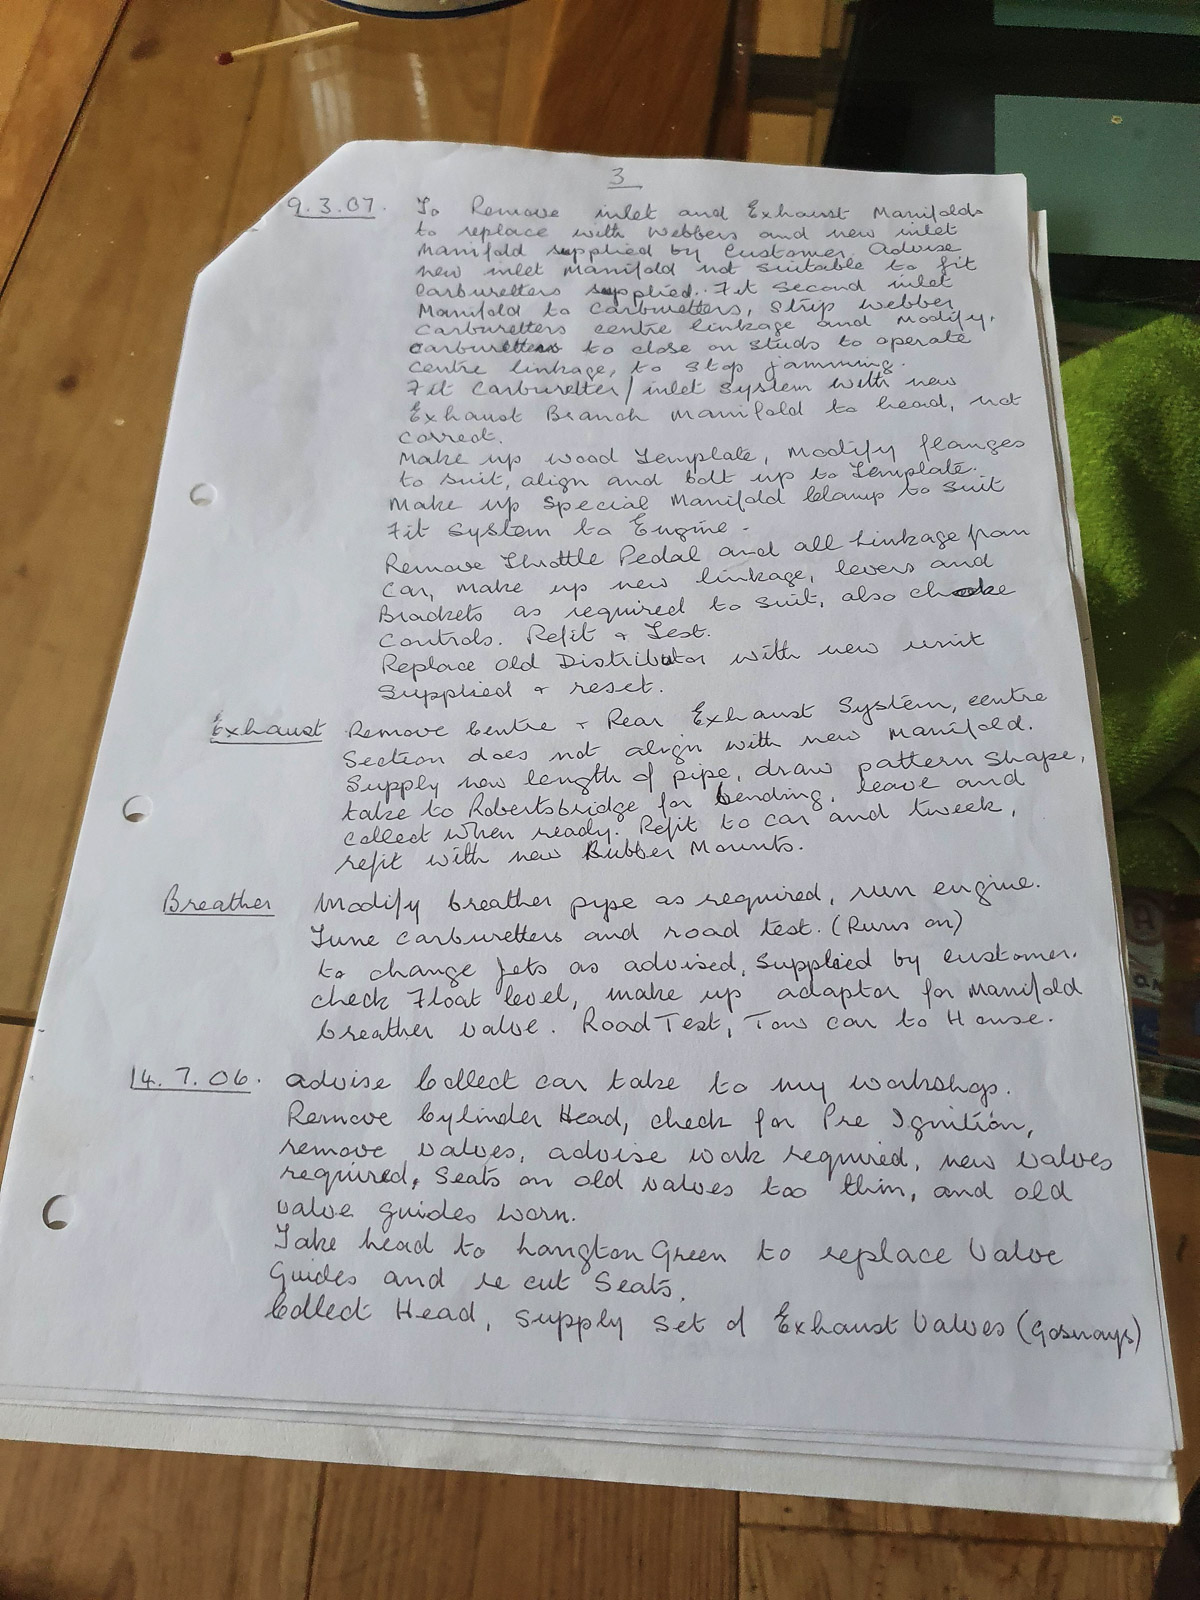 3
9.3.07. To Remove inlet and Exhaust Manifolds
to replace with Webbers and new inlet
Manifold supplied by Customer. Advise
new inlet Manifold not suitable to fit
Carburetters supplied. Fit Second inlet
Manifold to Carburetters, strip webber
Carburetters centre linkage and Modify.
Carburetters to close on studs to operate
centre linkage, to stop jamming.
Fit Carburetter/inlet System with new
Exhaust Branch Manifold to head, not
correct.
Make up wood Template, Modify flanges
to suit, align and bolt up to Template.
Make up Special Manifold Clamp to Suit
Fit System to Engine.
Remove Throttle Pedal and all Linkage from
Car, make up new linkage, levers and
Brackets as required to suit, also choke
Controls. Refit & Test.
Replace old Distributor with new unit
Supplied & reset.
Exhaust Remove Centre & Rear Exhaust System, centre
Section does not align with new Manifold.
Supply new length of pipe, draw pattern Shape,
take to Robertsbridge for bending, leave and
collect when ready. Refit to car and tweek,
refit with new Rubber Mounts.
Breather Modify breather pipe as required, run engine.
Tune carburetters and road test. (Runs on)
to change Jets as advised, Supplied by customer.
check Float level, make up adaptor for Manifold
breather valve. Road Test, Tow car to House.
14.7.06. advise Collect car take to my workshop.
Remove Cylinder Head, check for Pre Ignition,
remove valves, advise work required, new valves
required, Seats on old valves too thin, and old
valve guides worn.
Take head to Langton Green to replace Valve
Guides and re cut Seats.
Collect Head, Supply Set of Exhaust Valves (Gosnays)